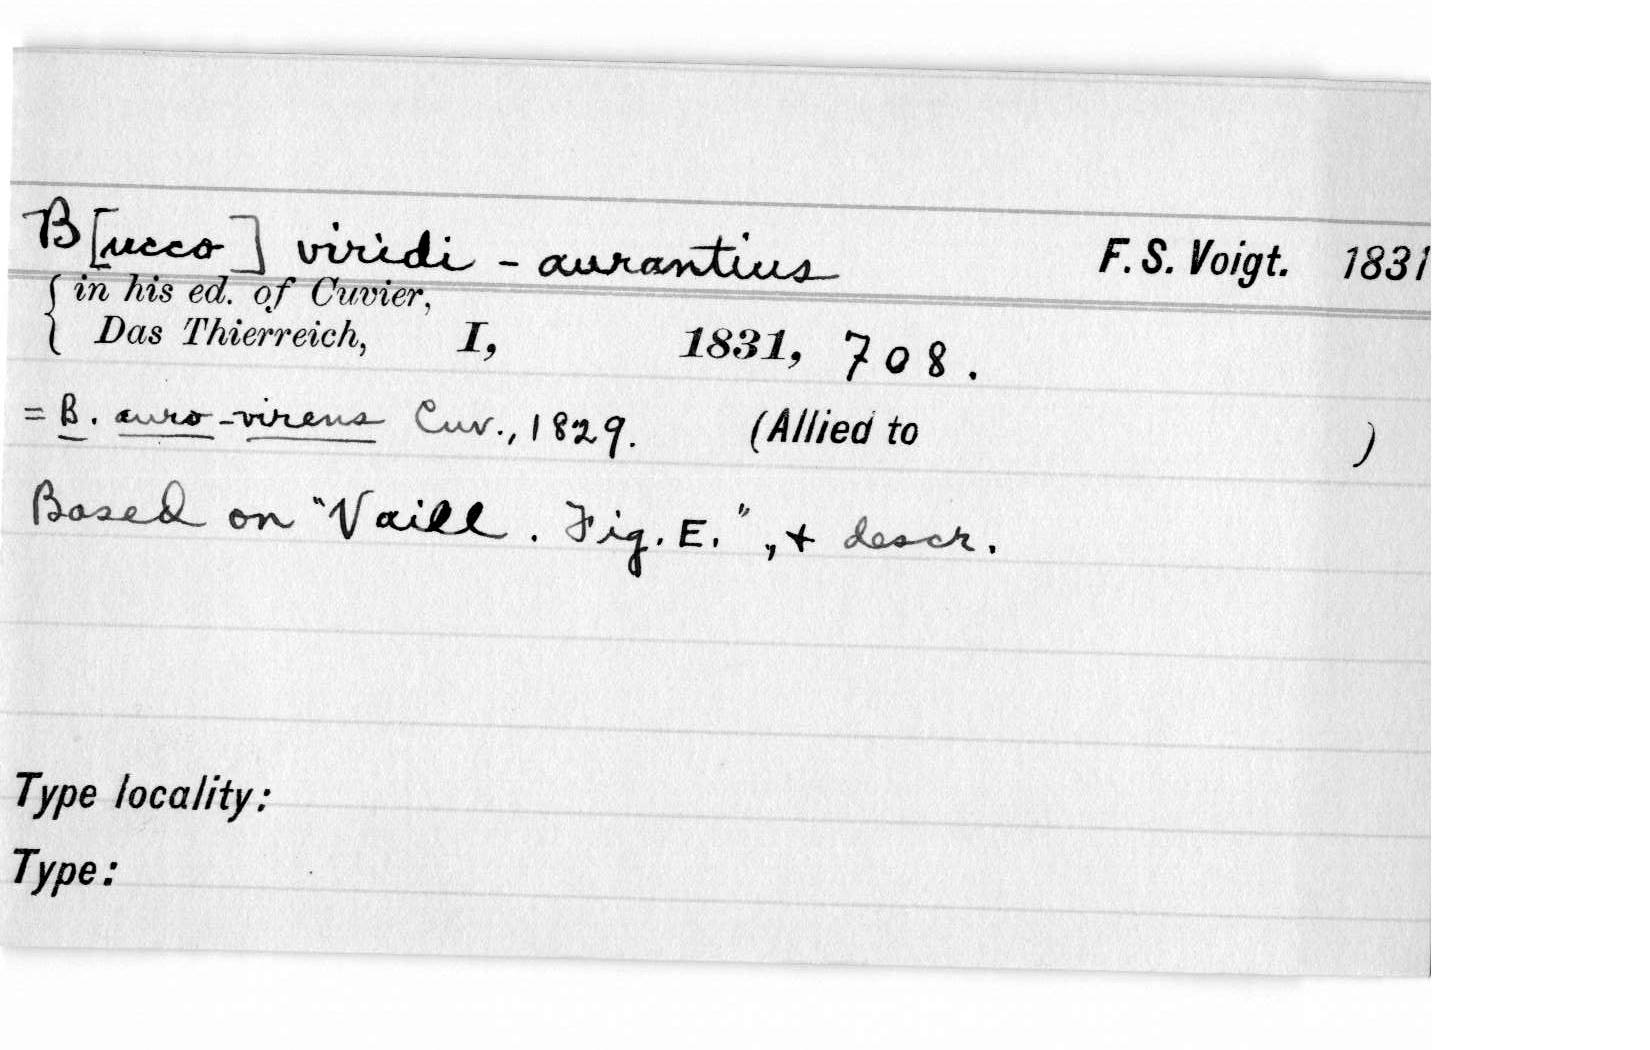 B[ucco] viridi-aurantius F. S. Voigt. 1831
{ in his ed. of Cuvier,
Das Thierreich, I, 1831, 708.
= B. auro-virens Cuv., 1829. (Allied to )
Based on "Vaill. Fig. E.", + descr.
Type locality:
Type: